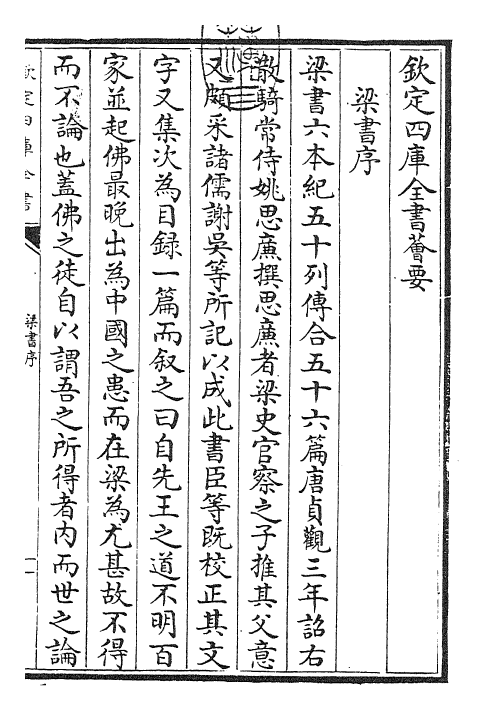 欽定四庫全書薈要
梁書序
梁書六本紀五十列傳合五十六篇唐貞觀三年詔右
散騎常侍姚思廉撰思廉者梁史官察之子推其父意
又頗采諸儒謝吳等所記以成此書臣等既校正其文
字又集次為目録一篇而叙之曰自先王之道不明百
家並起佛最晚出為中國之患而在梁為尤甚故不得
而不論也蓋佛之徒自以謂吾之所得者內而世之論
欽定四庫全書
梁書序
一